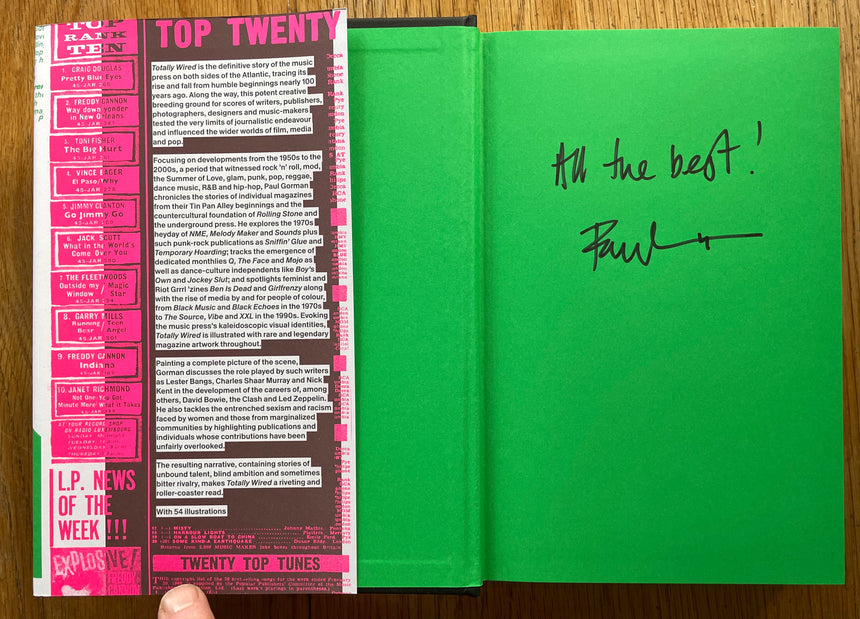 TOP
RANK
TEN
1. CRAIG DOUGLAS
Pretty Blue Eyes
45-JAR 268
2. FREDDY CANNON
Way down yonder
in New Orleans
45-JAR 247
3. TONI FISHER
The Big Hurt
45-JAR
4. VINCE EAGER
El Paso/Why
45-JAR 275
5. JIMMY CLANTON
Go Jimmy Go
45-JAR
6. JACK SCOTT
What in the World's
Come Over You
45-JAR 280
7 THE FLEETWOODS
Outside my / Magic
Window / Star
45-JAR 294
8. GARRY MILLS
Running / Teen
Bear / Angel
45-JAR 301
9. FREDDY CANNON
Indiana
45-JAR
10. JANET RICHMOND
Not One You Got
Minute More What it Takes
45-JAR
AT YOUR RECORD SHOP
ON RADIO LUXEMBOURG
SUNDAY
TUESDAY
WEDNESDAY
THURSDAY
L.P. NEWS
OF THE
WEEK !!!
EXPLOSIVE!
TOP TWENTY
Totally Wired is the definitive story of the music
press on both sides of the Atlantic, tracing its
rise and fall from humble beginnings nearly 100
years ago. Along the way, this potent creative
breeding ground for scores of writers, publishers,
photographers, designers and music-makers
tested the very limits of journalistic endeavour
and influenced the wider worlds of film, media
and pop.
Focusing on developments from the 1950s to the
2000s, a period that witnessed rock 'n' roll, mod,
the Summer of Love, glam, punk, pop, reggae,
dance music, R&B and hip-hop, Paul Gorman
chronicles the stories of individual magazines
from their Tin Pan Alley beginnings and the
countercultural foundation of Rolling Stone and
the underground press. He explores the 1970s
heyday of NME, Melody Maker and Sounds plus
such punk-rock publications as Sniffin' Glue and
Temporary Hoarding; tracks the emergence of
dedicated monthlies Q, The Face and Mojo as
well as dance-culture independents like Boy's
Own and Jockey Slut; and spotlights feminist and
Riot Grrrl 'zines Ben Is Dead and Girlfrenzy along
with the rise of media by and for people of colour,
from Black Music and Black Echoes in the 1970s
to The Source, Vibe and XXL in the 1990s. Evoking
the music press's kaleidoscopic visual identities,
Totally Wired is illustrated with rare and legendary
magazine artwork throughout.
Painting a complete picture of the scene,
Gorman discusses the role played by such writers
as Lester Bangs, Charles Shaar Murray and Nick
Kent in the development of the careers of, among
others, David Bowie, the Clash and Led Zeppelin.
He also tackles the entrenched sexism and racism
faced by women and those from marginalized
communities by highlighting publications and
individuals whose contributions have been
unfairly overlooked.
The resulting narrative, containing stories of
unbound talent, blind ambition and sometimes
bitter rivalry, makes Totally Wired a riveting and
roller-coaster read.
With 54 illustrations
MISTY Johnny Mathis,
HARBOUR LIGHTS Platters,
ON A SLOW BOAT TO CHINA Emile Ford,
SOME KIND-A EARTHQUAKE Duane Eddy, London
Returns from 2,500 MUSIC MAKER juke boxes throughout Britain
TWENTY TOP TUNES
THIS copyright list of the 20 best-selling songs for the week ended February
All the best!
Paul